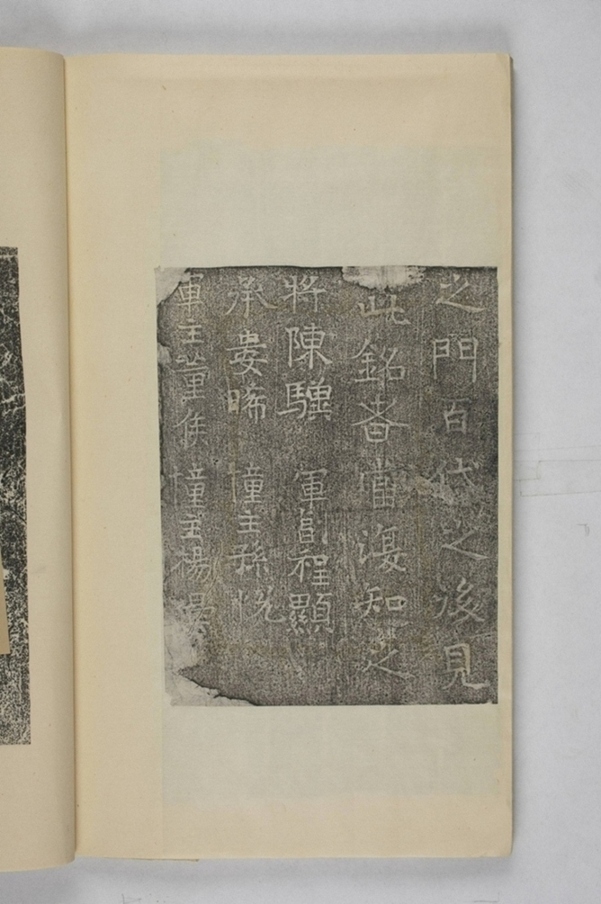 之門百代之後見
此銘者當復知之
將陳驥 軍副程顯
承婁晞 幢主孫悅
軍主董侯 幢主楊